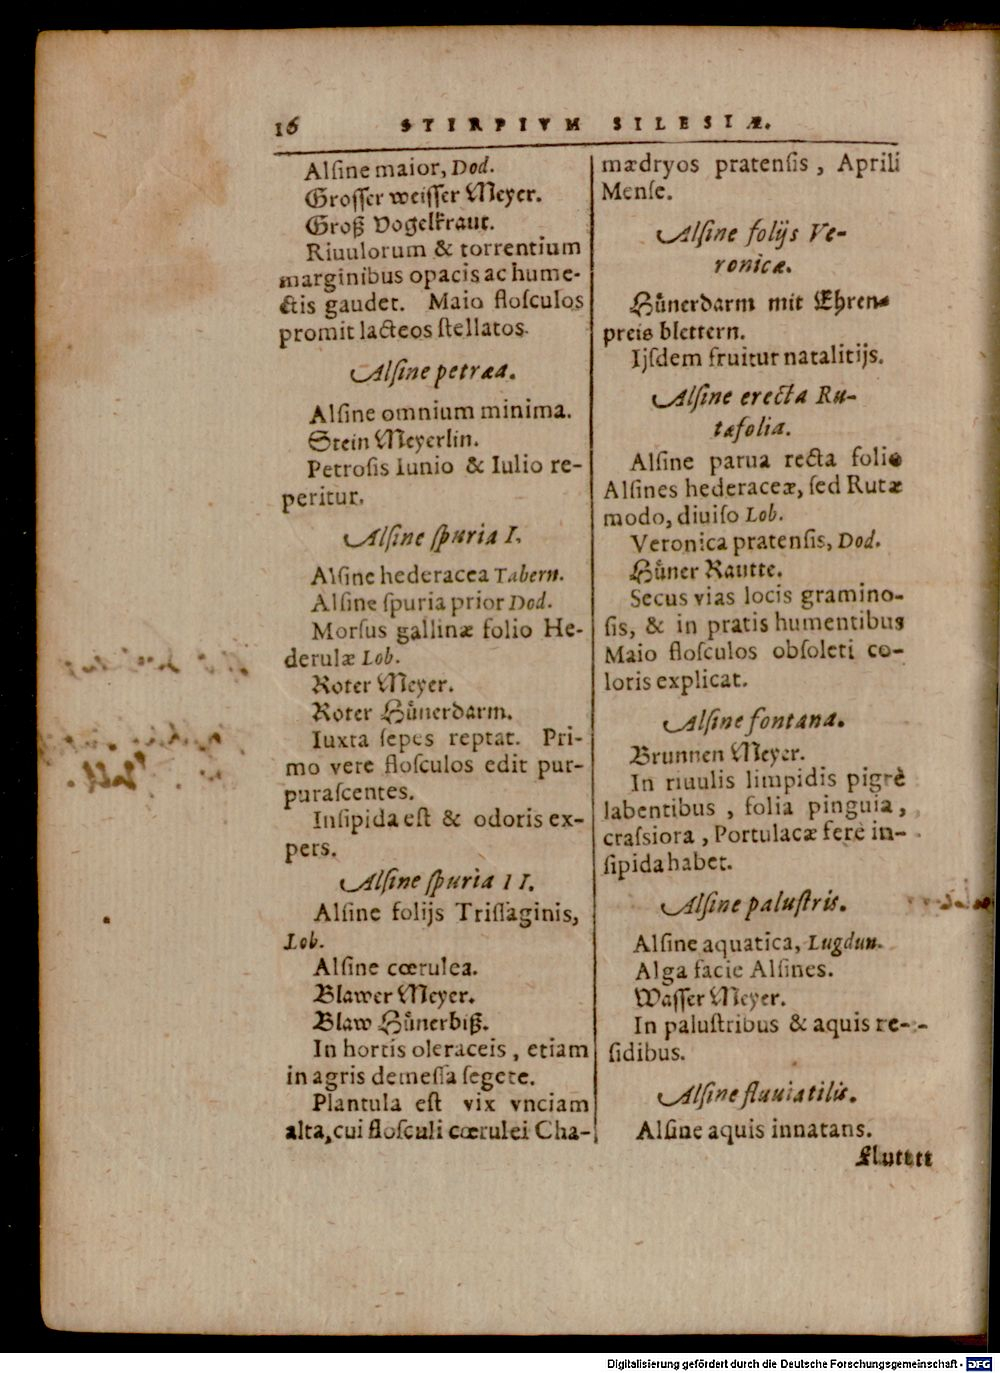 16 STIRPIVM SILESIÆ.
Alſine maior, Dod.
Groſſer weiſſer Meyer.
Groß Vogelkraut.
Riuulorum & torrentium
marginibus opacis ac hume-
ctis gaudet. Maio floſculos
promit lacteos ſtellatos.
Alſine petræa.
Alſine omnium minima.
Stein Meyerlin.
Petroſis Iunio & Iulio re-
peritur.
Alſine ſpuria I.
Alſine hederacea Tabern.
Alſine ſpuria prior Dod.
Morſus gallinæ folio He-
derulæ Lob.
Roter Meyer.
Roter Hůnerdarm.
Iuxta ſepes reptat. Pri-
mo vere floſculos edit pur-
puraſcentes.
Inſipida eſt & odoris ex-
pers.
Alſine ſpuria II.
Alſine folijs Triſſaginis,
Lob.
Alſine cœrulea.
Blawer Meyer.
Blaw Hůnerbiß.
In hortis oleraceis, etiam
in agris demeſſa ſegete.
Plantula eſt vix vnciam
alta, cui floſculi cœrulei Cha-
mædryos pratenſis, Aprili
Menſe.
Alſine folijs Ve-
ronicæ.
Hůnerdarm mit Ehren-
preis blettern.
Ijſdem fruitur natalitijs.
Alſine erecta Ru-
tæfolia.
Alſine parua recta folio
Alſines hederaceæ, ſed Rutæ
modo, diuiſo Lob.
Veronica pratenſis, Dod.
Hůner Rautte.
Secus vias locis gramino-
ſis, & in pratis humentibus
Maio floſculos obſoleti co-
loris explicat.
Alſine fontana.
Brunnen Meyer.
In riuulis limpidis pigrè
labentibus, folia pinguia,
craſsiora, Portulacæ ferè in-
ſipida habet.
Alſine paluſtris.
Alſine aquatica, Lugdun.
Alga facie Alſines.
Waſſer Meyer.
In paluſtribus & aquis re-
ſidibus.
Alſine fluuiatilis.
Alſine aquis innatans.
Digitalisierung gefördert durch die Deutsche Forschungsgemeinschaft - DFG